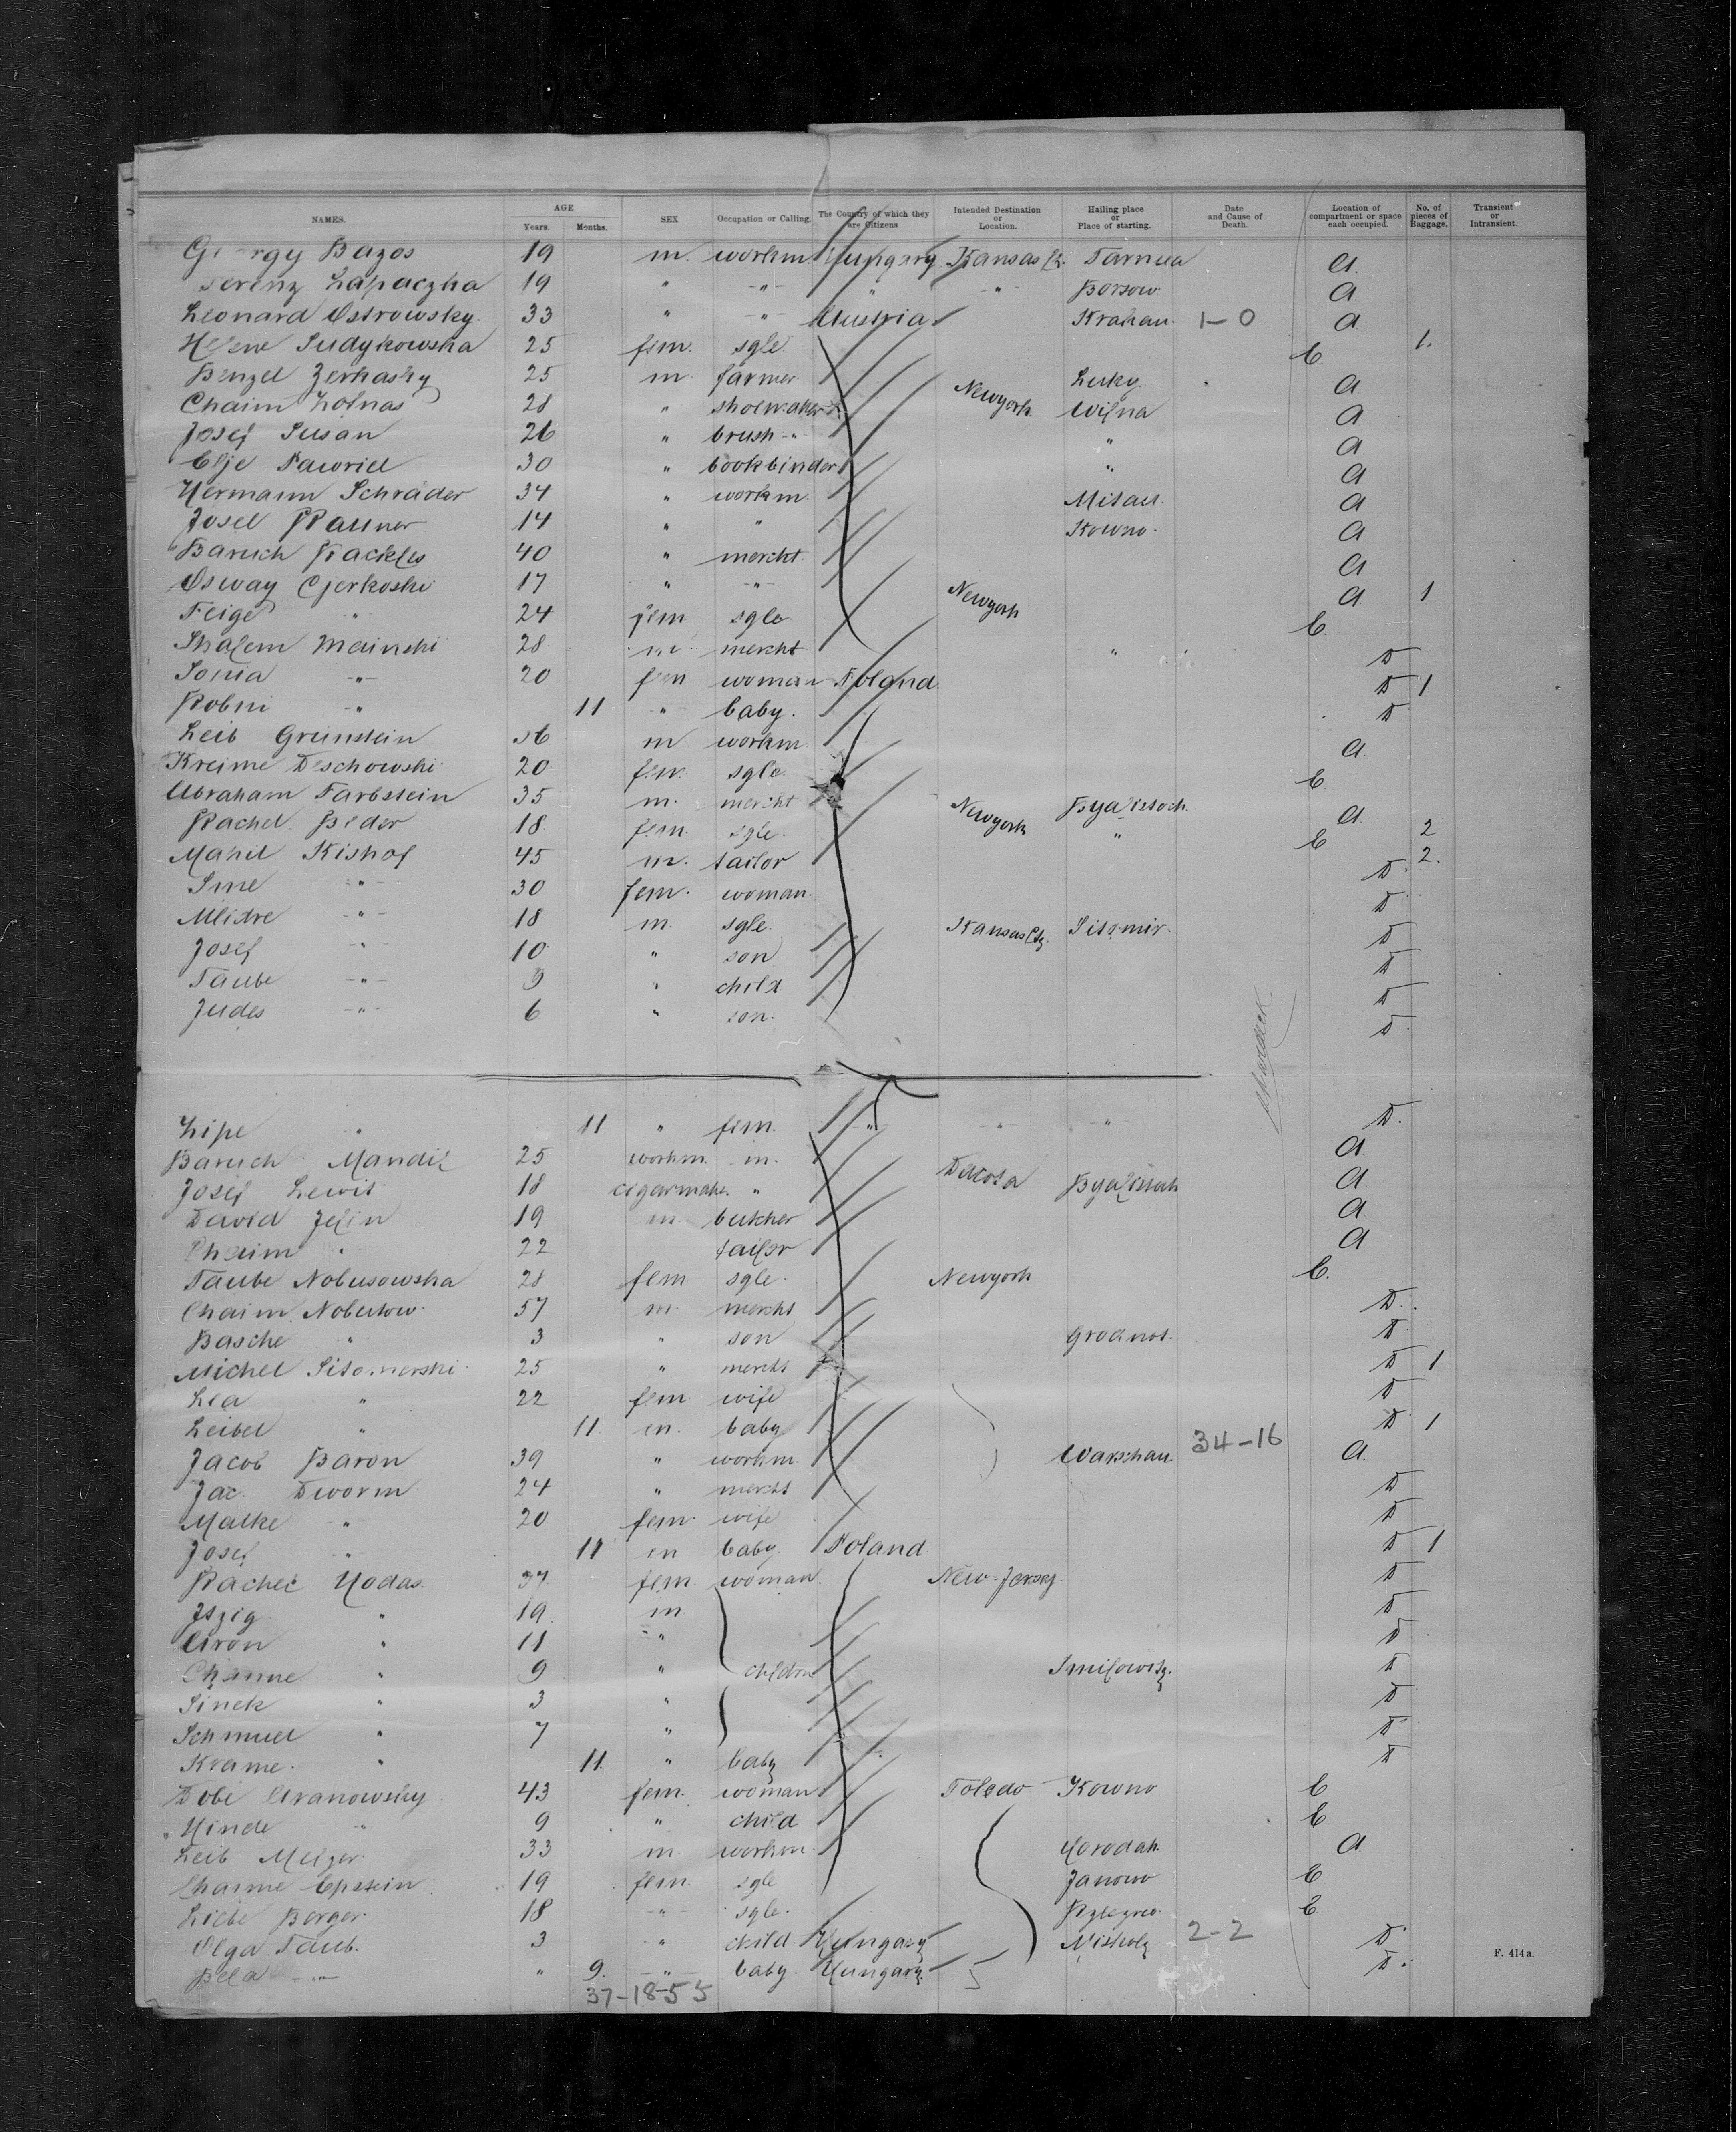 NAMES. AGE Years. Months. SEX Occupation or Calling. The Country of which they are Citizens Intended Destination or Location. Hailing place or Place of starting. Date and Cause of Death. Location of compartment or space each occupied. No. of pieces of Baggage. Transient or Intransient.
Bazos 19 m. workm. Hungary Kansas Tarnua a.
Ferenz Lapaczka 19 " -"- " -"- Borsow a
Leonard Ostrowsky. 33 " -"- Austria Krakau 1-0 a
Helene Sudykowska 25 fem. sgle. C 1.
Benzel Zerkasky 25 m. farmer Luky. a
Chaim Lotnas 28 " shoemaker Newyork Wilna a
Josef Susan 26 " brush-"- " a
Elje Pawriel 30 " bookbinder " a
Hermann Schräder 34 " workm. Mitau. a
Josel Rauner 14 " " Kowno. a
Baruch 40 " mercht. a
Osway Cjerkoski 17 " -"- Newyork a 1
Feige " 24 fem sgle C
Shalem Mainski 28 m. mercht " D
Sonia -"- 20 fem woman Poland D 1
Robni -"- 11 " baby. D
Leib Grünstein 36 m workm a
Kreime Deschowski 20 fem. sgle C
Abraham Farbstein 35 m. mercht Newyork Byalistock a.
Rachel Beder 18 fem. sgle. " C 2
Mahil Kishof 45 m. tailor D. 2.
Sme -"- 30 fem. woman. D
Mlidre -"- 18 m. sgle. Kansas Cty. Sitomir. D
Josef " 10 " son D
Taube -"- 9 " child D
Judes -"- 6 " son. D
Lipe " 11 " fem. " -"- -"- D.
Baruch Mandil 25 workm. m. a
Josef Lewit 18 cigarmaker " Dacota Byalistock a
David Jelin 19 m butcher a
Chaim " 22 tailor a
Taube Nobusowska 28 fem sgle. Newyork C.
Chaim Nobutow. 57 m. mercht D.
Basche " 3 " son Grodnot. D
Michel Sitomerski 25 " mercht D 1
Lea " 22 fem wife D
Leibel " 11 m. baby D 1
Jacob Baron 39 " workm. Warschau 34-16 a.
Jac. Dworm 24 " mercht D
Malke " 20 fem. wife D
Josef " 11 m baby. Poland D 1
Rachel Hodas 37 fem. woman. New-Jersey. D
Jszig " 19 m D
Aron " 11 " D
Channe " 9 " children Smilowitz. D
Sinek " 3 " D
Schmuel " 7 " D
Krame. " 11. " baby D
Dobe Aranowsky 43 fem. woman Toledo Kowno C
Hinde " 9 " child C
Leib Meizer 33 m. workm. Horodok a
Channe Epstein 19 fem. sgle Janowo C
Liebe Berger 18 -"- sgle. C
Olga Taub. 3 " child Hungary Miskolz 2-2 D
Bela -"- " 9. -"- baby. Hungary. D.
37-18-55
F. 414 a.